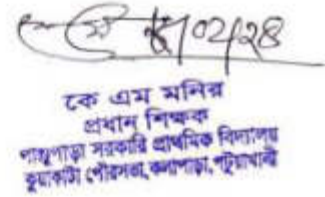 ০৮/০২/২৪
কে এম মনির
প্রধান শিক্ষক
পাঞ্জুপাড়া সরকারি প্রাথমিক বিদ্যালয়
কুয়াকাটা পৌরসভা, কলাপাড়া, পটুয়াখালী